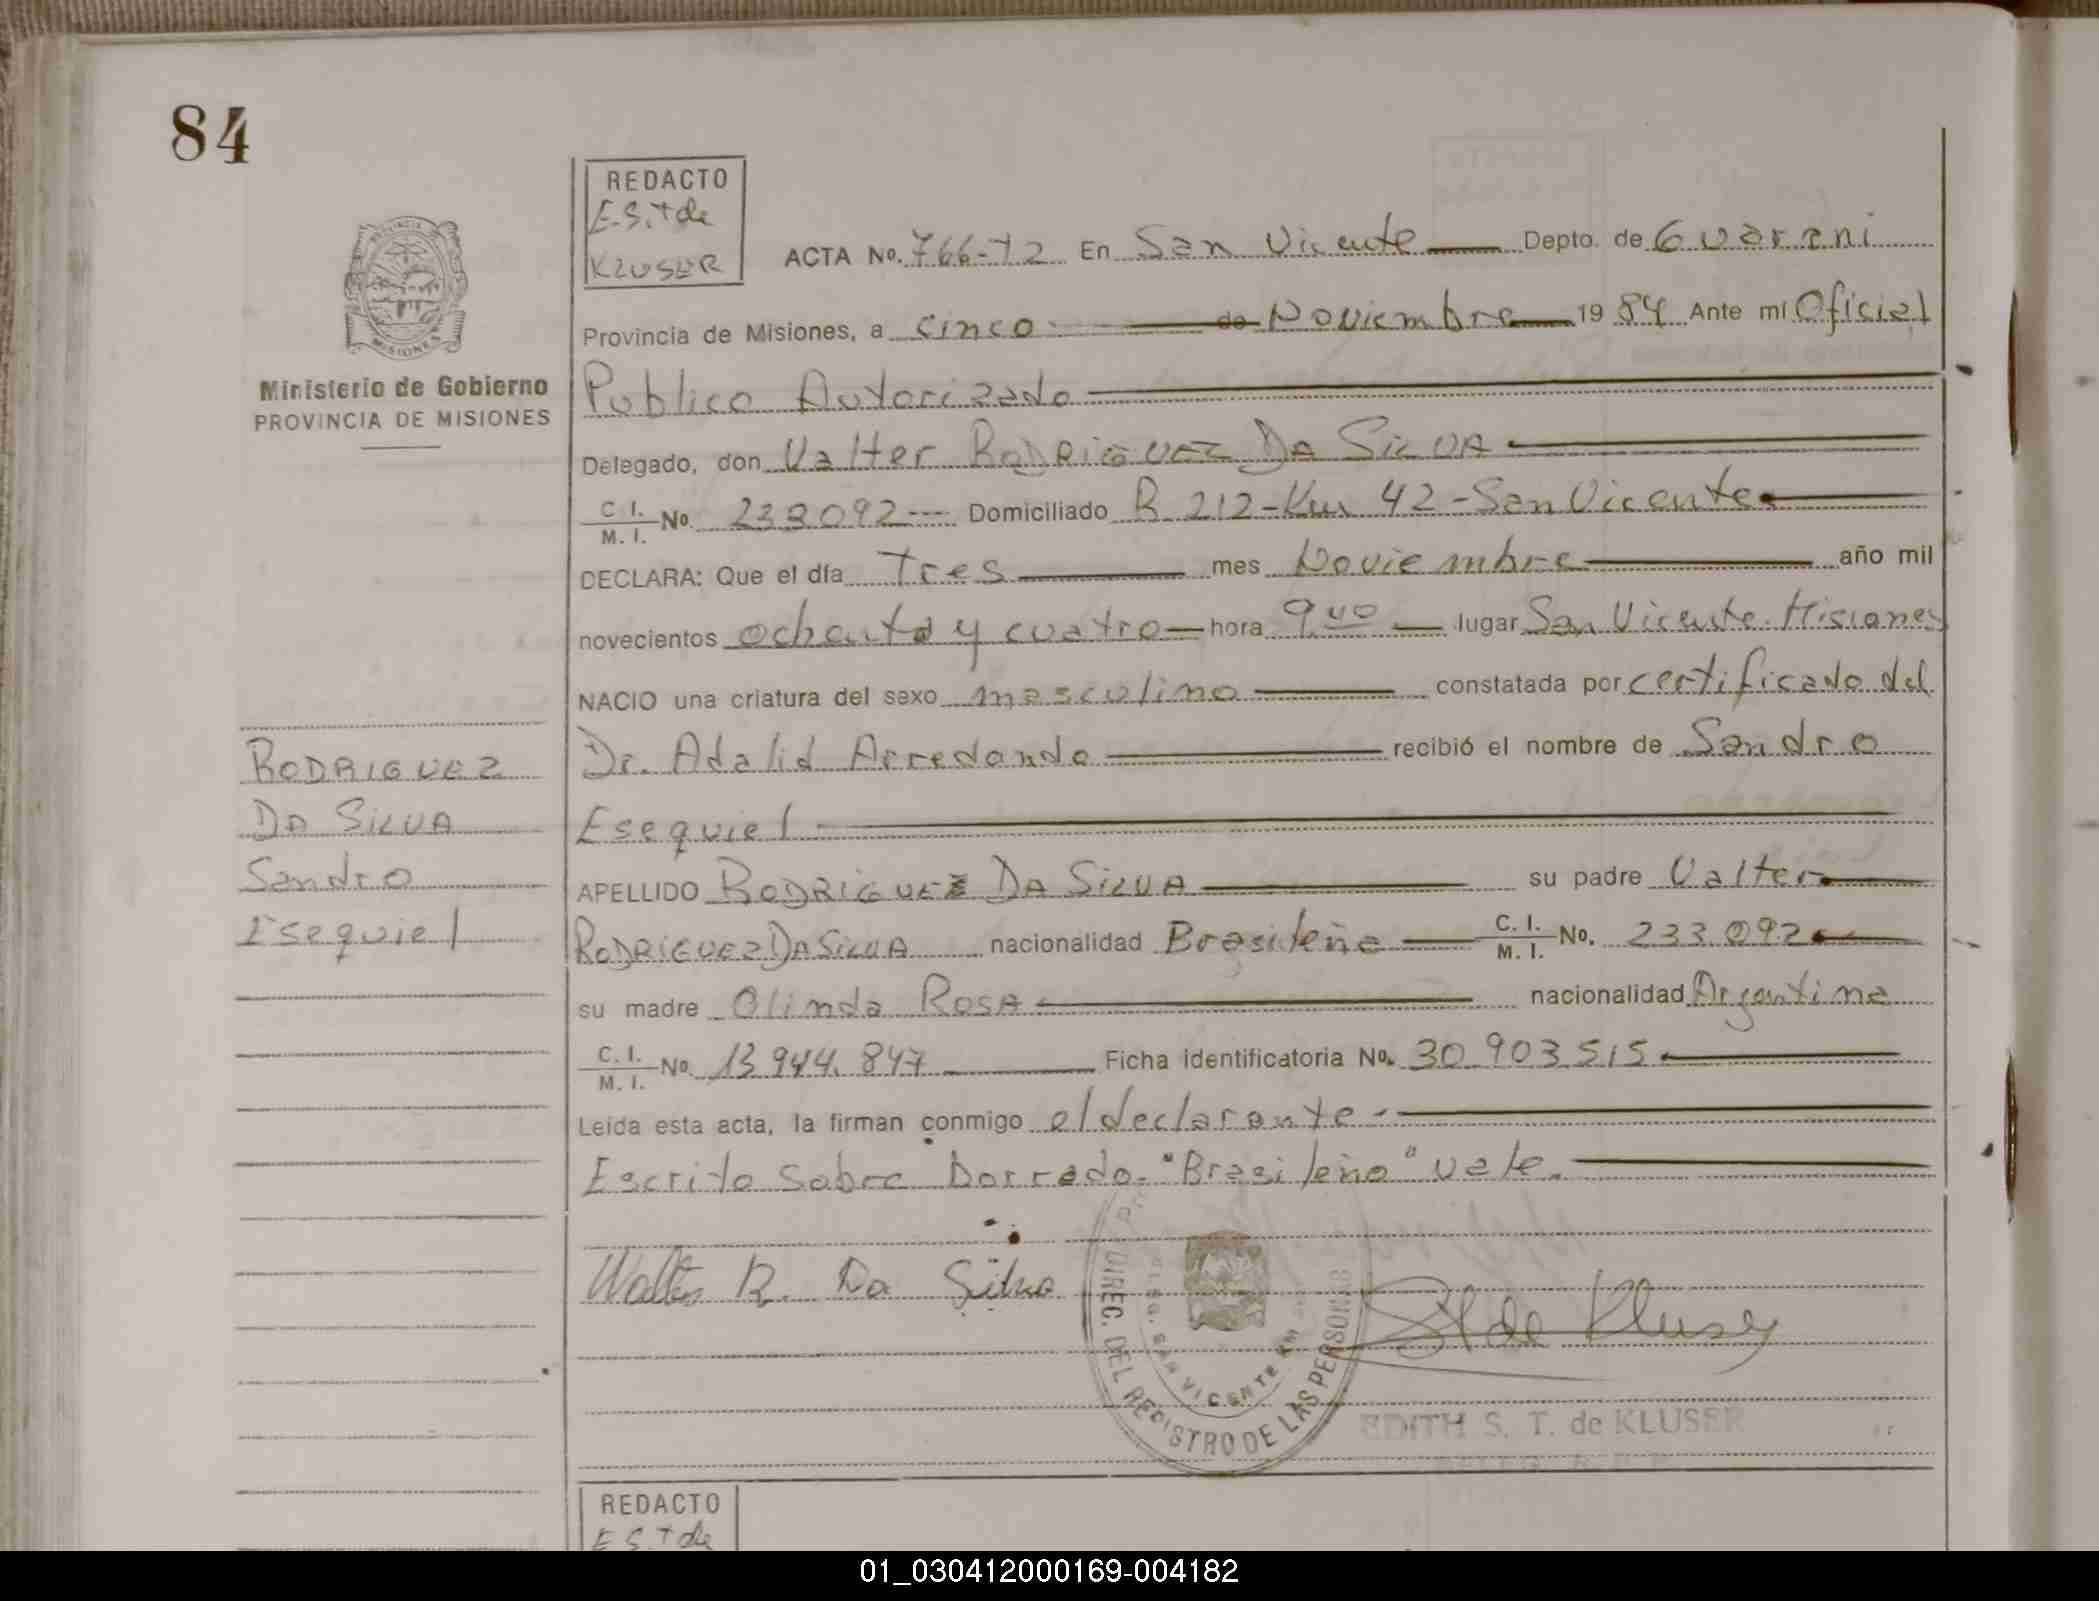 84
REDACTO
E.S.T de
KLUSER
ACTA No. 766-T2 En San Vicente Depto. de Guarani
Provincia de Misiones, a cinco de Noviembre 19 84 Ante mí Oficial
Publico Autorizado
Delegado, don Valter RODRIGUEZ DA SILVA
C. I.
M. I. No. 233092 Domiciliado R 212-Km 42-San Vicente
DECLARA: Que el día Tres mes Noviembre año mil
novecientos ochenta y cuatro hora 9,40 lugar San Vicente. Misiones
NACIO una criatura del sexo masculino constatada por certificado del
Dr. Adalid Arredondo recibió el nombre de Sandro
Esequiel
APELLIDO RODRIGUEZ DA SILVA su padre Valter
RODRIGUEZ DA SILVA nacionalidad Brasileña C. I.
M. I. No. 233.092
su madre Olinda ROSA nacionalidad Argentina
C. I.
M. I. No. 13.944.847 Ficha identificatoria No. 30.903.515
Leída esta acta, la firman conmigo el declarante
Escrito Sobre Borrado. "Brasileño" vale.
Walter R. Da Silva
EDITH S. T. de KLUSER
DIREC. DEL REGISTRO DE LAS PERSONAS
SAN VICENTE
PROVINCIA
MISIONES
Ministerio de Gobierno
PROVINCIA DE MISIONES
RODRIGUEZ
DA SILVA
Sandro
Esequiel
REDACTO
E.S.T de
01_030412000169-004182